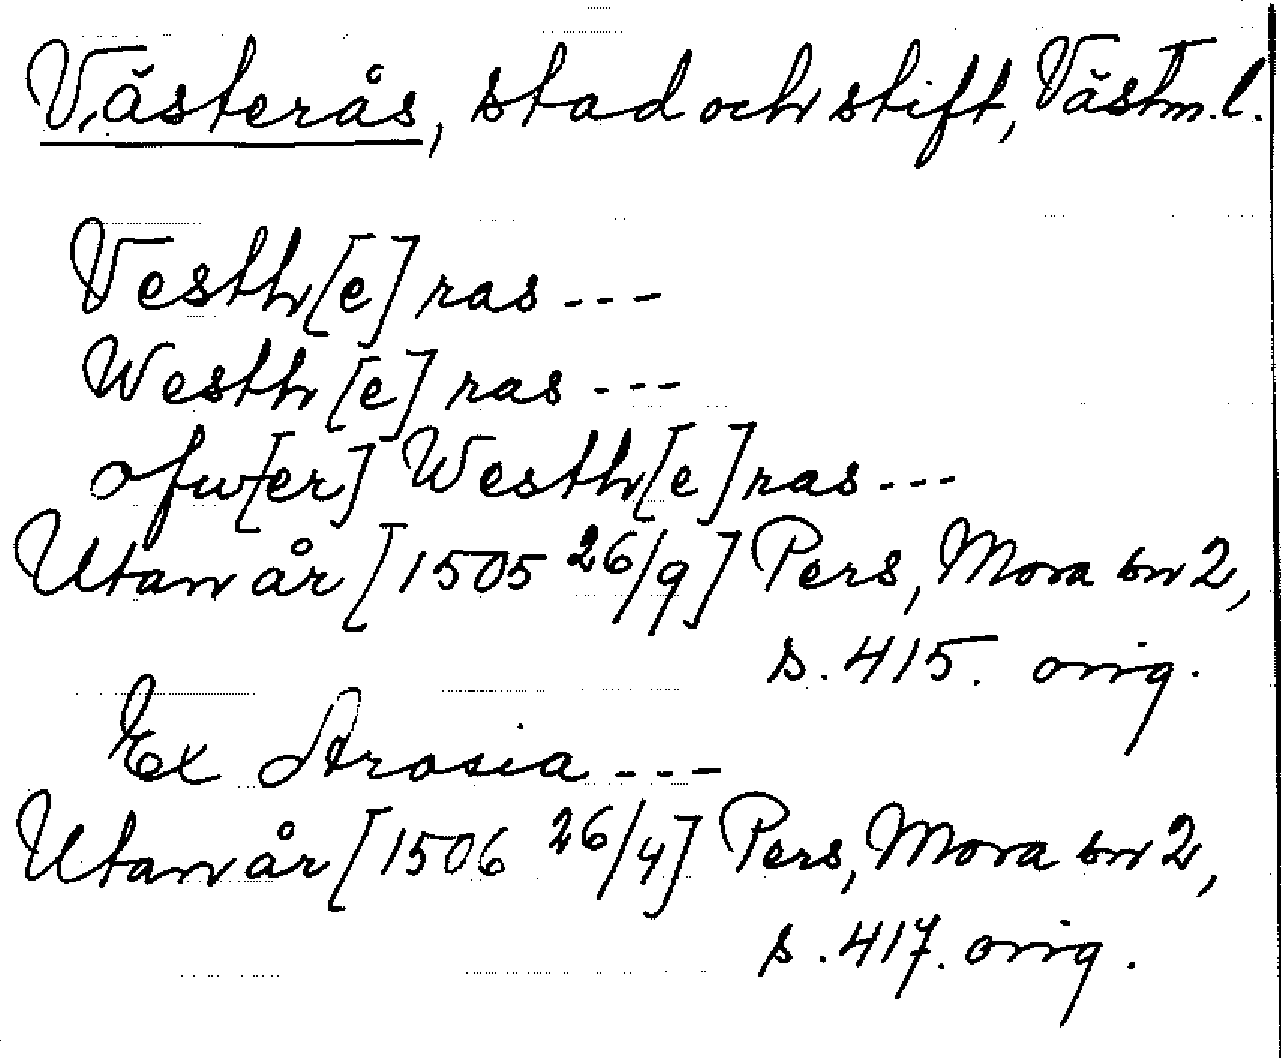 Västerås, stad och stift, Västm. l.
Vesth[e]ras ---
Westh[e]ras ---
ofw[er] Westh[e]ras ---
Utan år [1505 26/9] Pers, Mora bn 2,
s. 415. orig.
Ex Arosia ---
Utan år [1506 26/4] Pers, Mora bn 2,
s. 417. orig.